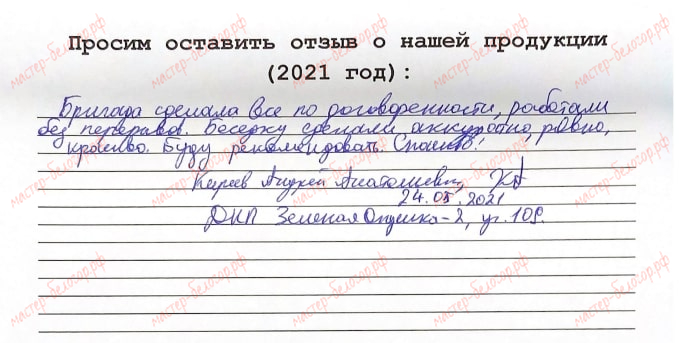 Просим оставить отзыв о нашей продукции
(2021 год):
Бригада сделала все по договоренности, работали
без перерывов. Беседку сделали аккуратно, ровно,
красиво. Буду рекомендовать. Спасибо!
Андрей Анатольевич,
24.05.2021
ДНП Зеленая Опушка-2, уч. 109.
мастер-белозор.рф